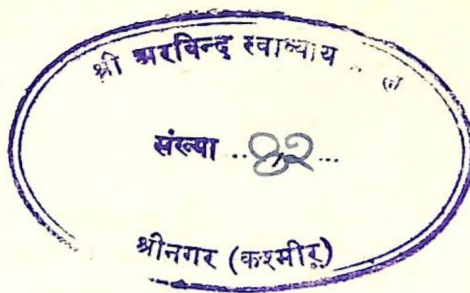 श्री अरविन्द स्वाध्याय
संख्या ..४२...
श्रीनगर (कश्मीर)